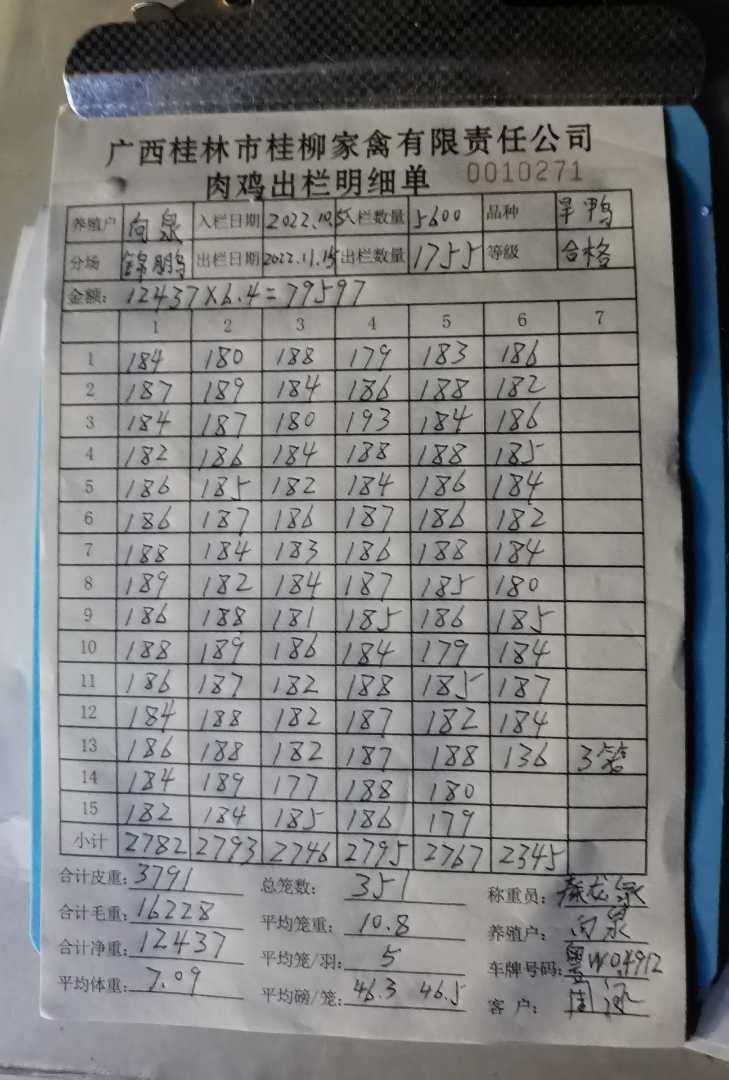 广西桂林市桂柳家禽有限责任公司
肉鸡出栏明细单 0010271
养殖户 向泉 入栏日期 2022.10.5 入栏数量 5600 品种 旱鸭
分场 锦鹏 出栏日期 2022.11.15 出栏数量 1755 等级 合格
金额: 12437×6.4=79597
1 2 3 4 5 6 7
1 184 180 188 179 183 186
2 187 189 184 186 188 182
3 184 187 180 193 184 186
4 182 186 184 188 188 185
5 186 185 182 184 186 184
6 186 187 186 187 186 182
7 188 184 183 186 188 184
8 189 182 184 187 185 180
9 186 188 181 185 186 185
10 188 189 186 184 179 184
11 186 187 182 188 185 187
12 184 188 182 187 182 184
13 186 188 182 187 188 136 3笼
14 184 189 177 188 180
15 182 184 185 186 179
小计 2782 2793 2746 2795 2767 2345
合计皮重: 3791 总笼数: 351 称重员: 秦龙泉
合计毛重: 16228 平均笼重: 10.8 养殖户: 向泉
合计净重: 12437 平均笼/羽: 5 车牌号码: W0.4912
平均体重: 7.09 平均磅/笼: 46.3 46.5 客户: 周